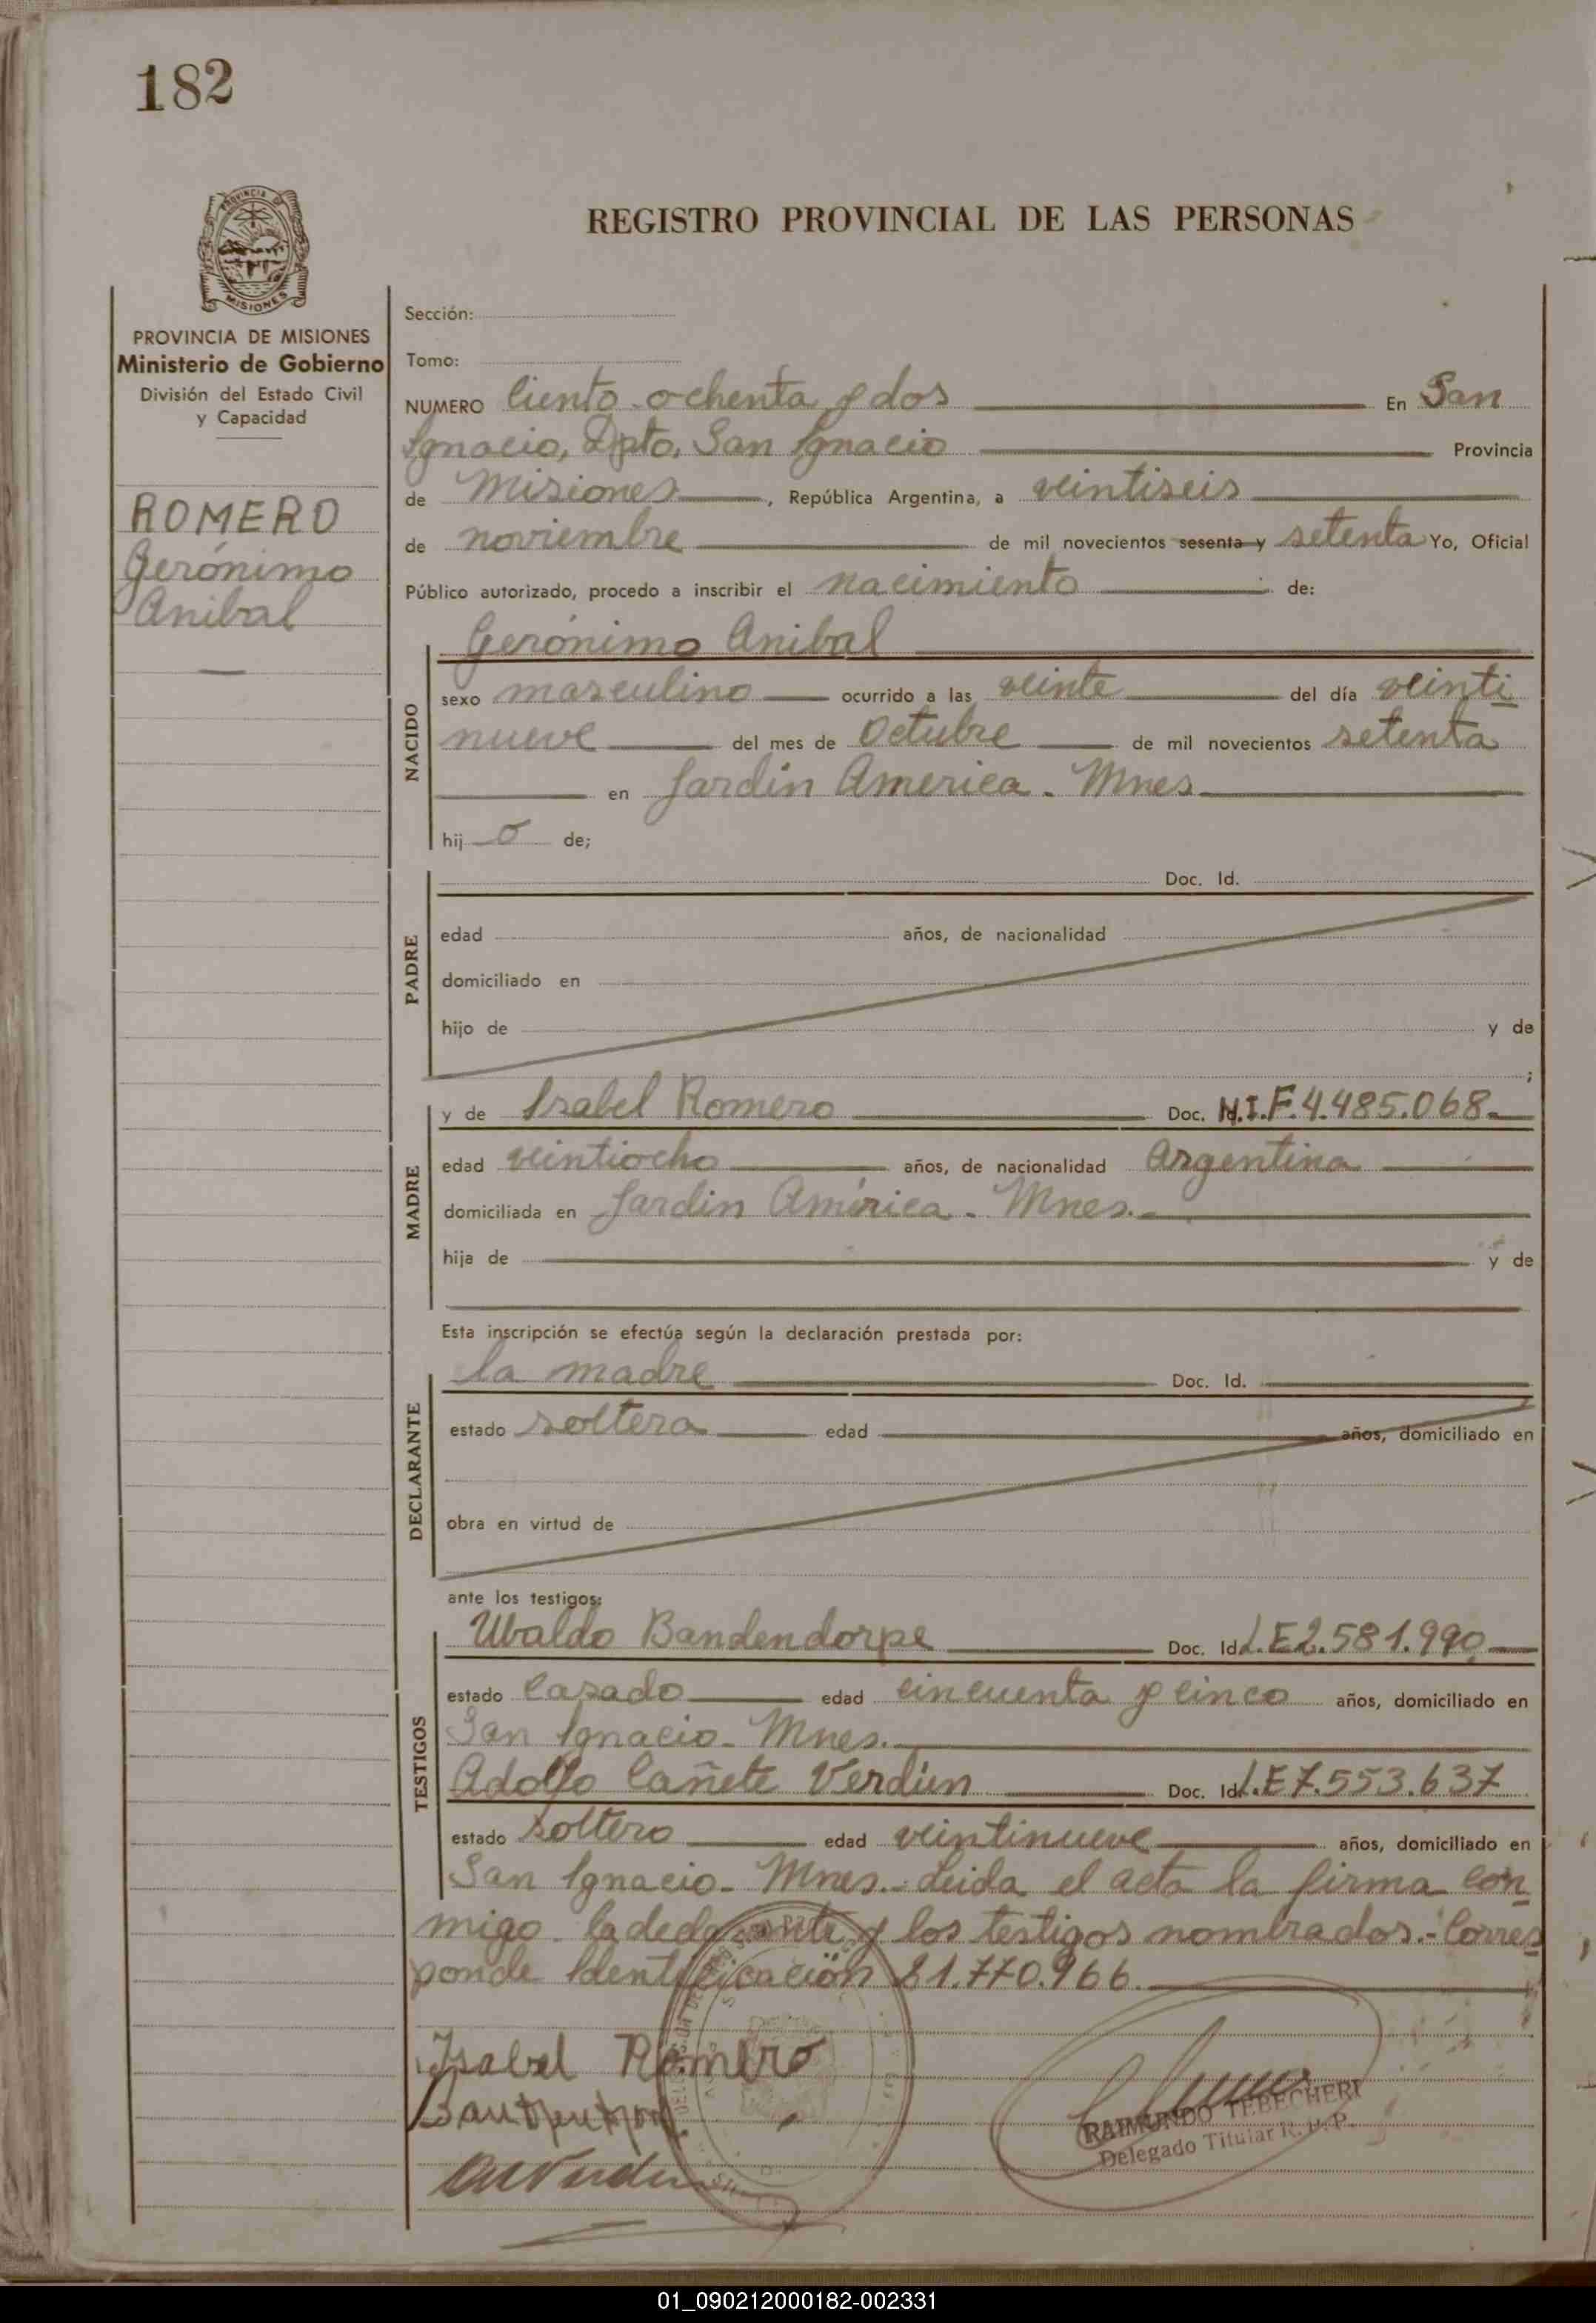 182
PROVINCIA DE
MISIONES
PROVINCIA DE MISIONES
Ministerio de Gobierno
División del Estado Civil
y Capacidad
ROMERO
Gerónimo
Anibal
REGISTRO PROVINCIAL DE LAS PERSONAS
Sección:
Tomo:
NUMERO Ciento ochenta y dos En San
Ignacio, Dpto. San Ignacio Provincia
de Misiones, República Argentina, a veintiseis
de noviembre de mil novecientos sesenta y setenta Yo, Oficial
Público autorizado, procedo a inscribir el nacimiento de:
NACIDO
Gerónimo Anibal
sexo masculino ocurrido a las veinte del día veinti
nueve del mes de Octubre de mil novecientos setenta
en Jardin America. Mnes
hij o de;
PADRE
Doc. Id.
edad años, de nacionalidad
domiciliado en
hijo de y de
;
MADRE
y de Isabel Romero Doc. N.I.F. 4.485.068.
edad veintiocho años, de nacionalidad Argentina
domiciliada en Jardin América. Mnes.
hija de y de
Esta inscripción se efectúa según la declaración prestada por:
DECLARANTE
la madre Doc. Id.
estado soltera edad años, domiciliado en
obra en virtud de
ante los testigos:
TESTIGOS
Ubaldo Bandendorpe Doc. Id. L.E 2.581.990
estado Casado edad cincuenta y cinco años, domiciliado en
San Ignacio. Mnes.
Adolfo Cañete Verdún Doc. Id. L.E 7.553.637
estado soltero edad veintinueve años, domiciliado en
San Ignacio. Mnes. Leida el acta la firma con
migo la declarante y los testigos nombrados.- Corres
ponde Identificación 21.770.966.
Isabel Romero
RAIMUNDO TEBECHERI
Delegado Titular R. P. P.
01_090212000182-002331